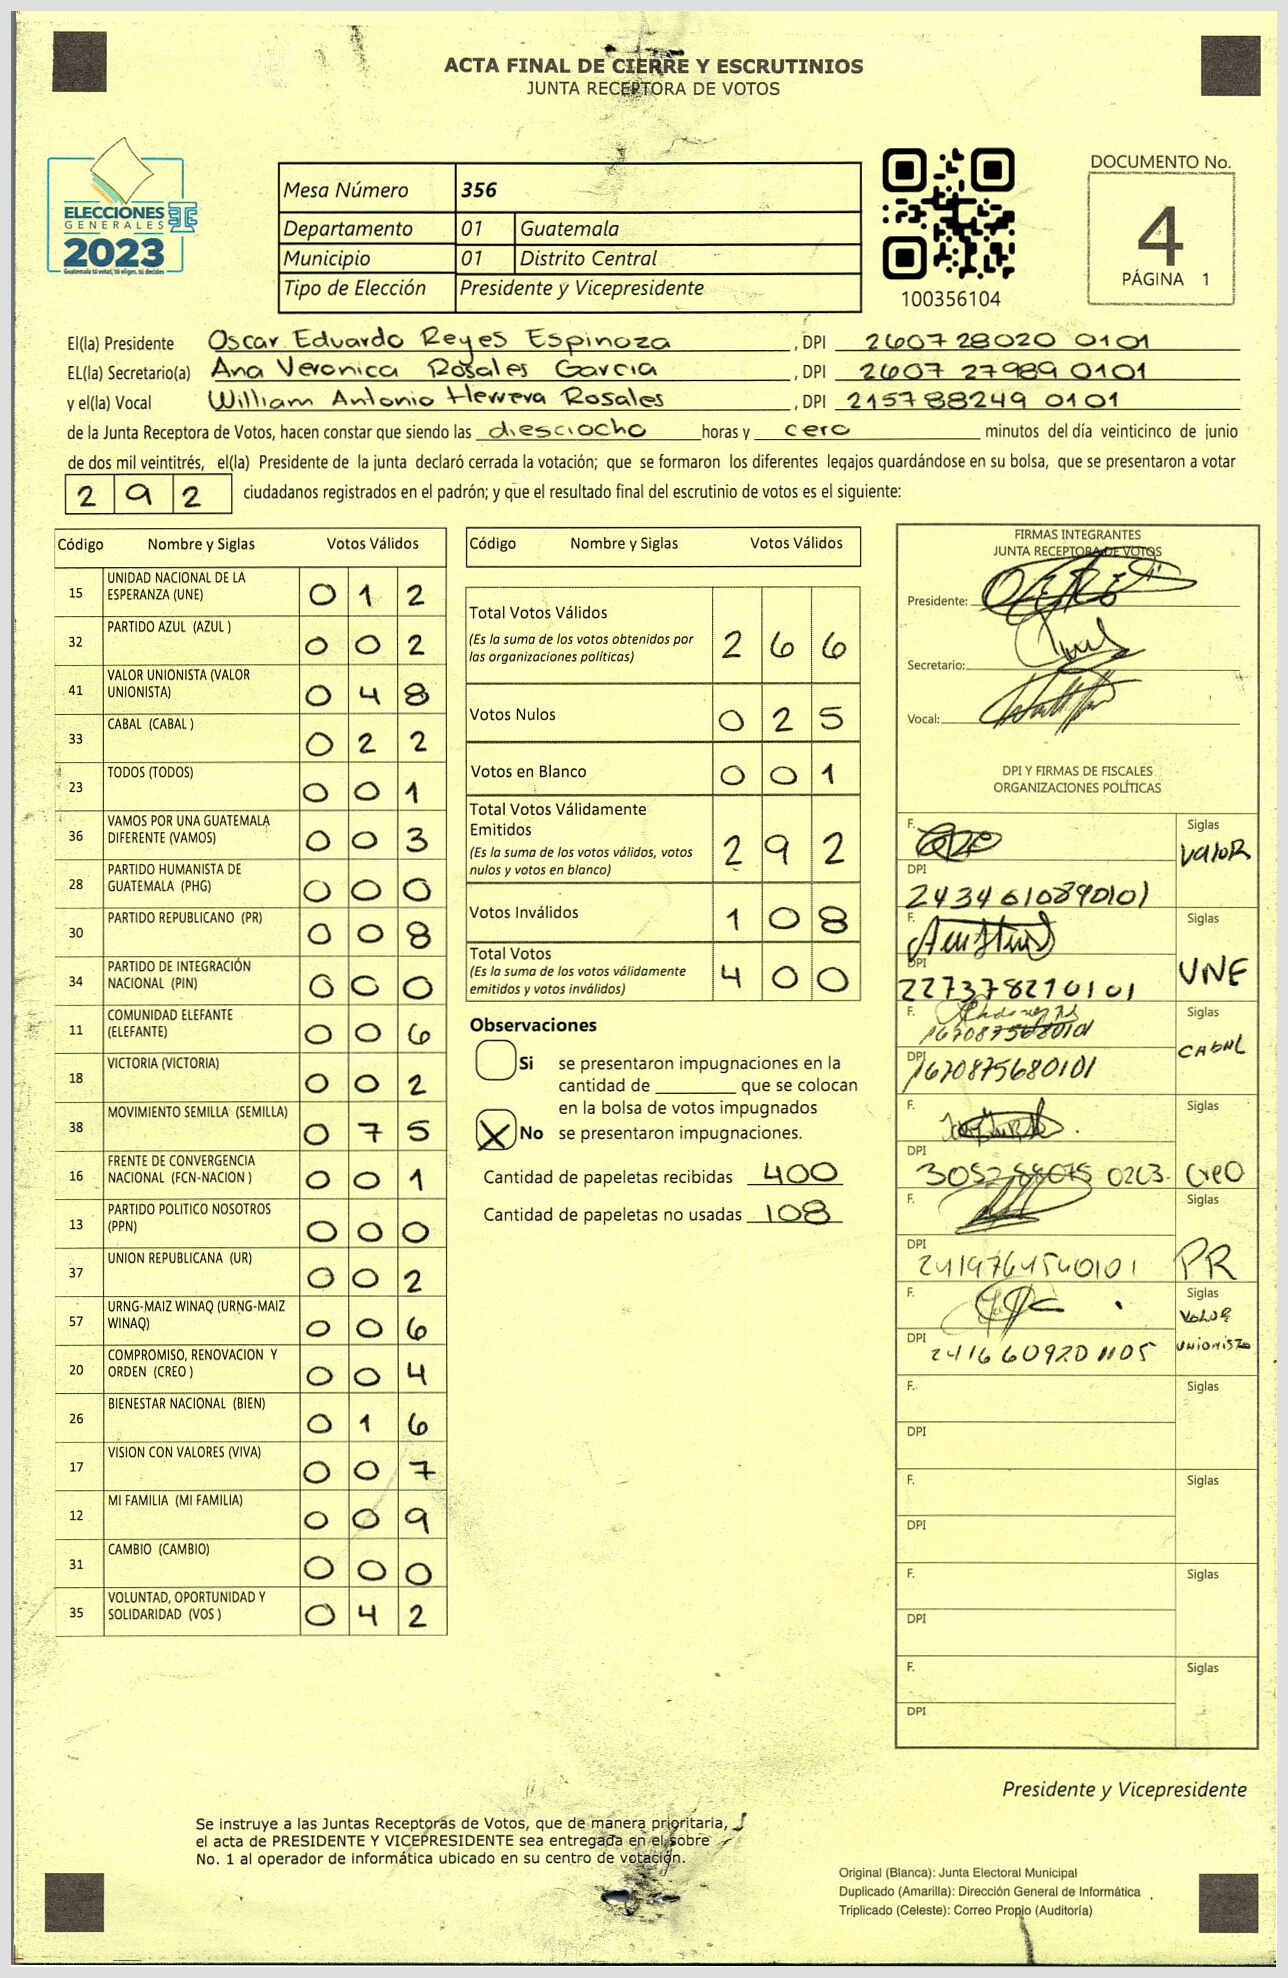 ACTA FINAL DE CIERRE Y ESCRUTINIOS
JUNTA RECEPTORA DE VOTOS
ELECCIONES
GENERALES
2023
Guatemala tú votas, tú eliges, tú decides
Mesa Número 356
Departamento 01 Guatemala
Municipio 01 Distrito Central
Tipo de Elección Presidente y Vicepresidente
100356104
DOCUMENTO No.
4
PÁGINA 1
El(la) Presidente Oscar Eduardo Reyes Espinoza, DPI 260728020 0101
EL(la) Secretario(a) Ana Veronica Rosales Garcia, DPI 2607 27989 0101
y el(la) Vocal William Antonio Herrera Rosales, DPI 215788249 0101
de la Junta Receptora de Votos, hacen constar que siendo las diesciocho horas y cero minutos del día veinticinco de junio
de dos mil veintitrés, el(la) Presidente de la junta declaró cerrada la votación; que se formaron los diferentes legajos guardándose en su bolsa, que se presentaron a votar
292 ciudadanos registrados en el padrón; y que el resultado final del escrutinio de votos es el siguiente:
Código Nombre y Siglas Votos Válidos
15 UNIDAD NACIONAL DE LA ESPERANZA (UNE) 0 1 2
32 PARTIDO AZUL (AZUL ) 0 0 2
41 VALOR UNIONISTA (VALOR UNIONISTA) 0 4 8
33 CABAL (CABAL ) 0 2 2
23 TODOS (TODOS) 0 0 1
36 VAMOS POR UNA GUATEMALA DIFERENTE (VAMOS) 0 0 3
28 PARTIDO HUMANISTA DE GUATEMALA (PHG) 0 0 0
30 PARTIDO REPUBLICANO (PR) 0 0 8
34 PARTIDO DE INTEGRACIÓN NACIONAL (PIN) 0 0 0
11 COMUNIDAD ELEFANTE (ELEFANTE) 0 0 6
18 VICTORIA (VICTORIA) 0 0 2
38 MOVIMIENTO SEMILLA (SEMILLA) 0 7 5
16 FRENTE DE CONVERGENCIA NACIONAL (FCN-NACION ) 0 0 1
13 PARTIDO POLITICO NOSOTROS (PPN) 0 0 0
37 UNION REPUBLICANA (UR) 0 0 2
57 URNG-MAIZ WINAQ (URNG-MAIZ WINAQ) 0 0 6
20 COMPROMISO, RENOVACION Y ORDEN (CREO ) 0 0 4
26 BIENESTAR NACIONAL (BIEN) 0 1 6
17 VISION CON VALORES (VIVA) 0 0 7
12 MI FAMILIA (MI FAMILIA) 0 0 9
31 CAMBIO (CAMBIO) 0 0 0
35 VOLUNTAD, OPORTUNIDAD Y SOLIDARIDAD (VOS ) 0 4 2
Código Nombre y Siglas Votos Válidos
Total Votos Válidos 2 6 6
(Es la suma de los votos obtenidos por
las organizaciones políticas)
Votos Nulos 0 2 5
Votos en Blanco 0 0 1
Total Votos Válidamente
Emitidos 2 9 2
(Es la suma de los votos válidos, votos
nulos y votos en blanco)
Votos Inválidos 1 0 8
Total Votos 4 0 0
(Es la suma de los votos válidamente
emitidos y votos inválidos)
Observaciones
Si se presentaron impugnaciones en la
cantidad de ________ que se colocan
en la bolsa de votos impugnados
X No se presentaron impugnaciones.
Cantidad de papeletas recibidas 400
Cantidad de papeletas no usadas 108
FIRMAS INTEGRANTES
JUNTA RECEPTORA DE VOTOS
Presidente:
Secretario:
Vocal:
DPI Y FIRMAS DE FISCALES
ORGANIZACIONES POLÍTICAS
F. Siglas VALOR
DPI 2434610890101
F. Siglas UNE
DPI 2273782710101
F. Siglas CABAL
1670875680101
DPI 1670875680101
F. Siglas CreO
DPI 0203
F. Siglas PR
DPI 2419764540101
F. Siglas Valor
Unionista
DPI 241660920 1105
F. Siglas
DPI
F. Siglas
DPI
F. Siglas
DPI
F. Siglas
DPI
Presidente y Vicepresidente
Se instruye a las Juntas Receptoras de Votos, que de manera prioritaria,
el acta de PRESIDENTE Y VICEPRESIDENTE sea entregada en el sobre
No. 1 al operador de informática ubicado en su centro de votación.
Original (Blanca): Junta Electoral Municipal
Duplicado (Amarilla): Dirección General de Informática
Triplicado (Celeste): Correo Propio (Auditoría)